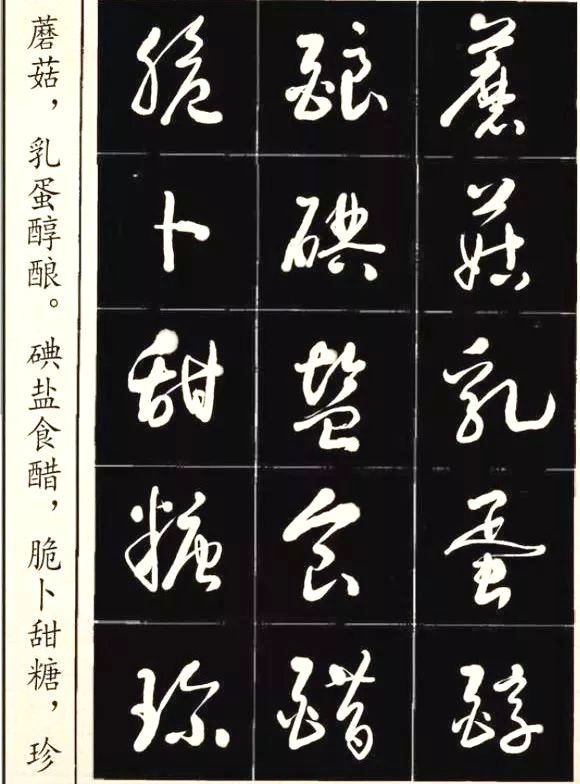 蘑菇乳蛋醇
酿碘盐食醋
脆卜甜糖珍
蘑菇，乳蛋醇酿。碘盐食醋，脆卜甜糖，珍